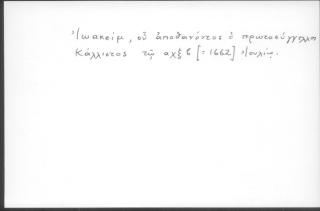 Ἰωακείμ, οὗ ἀποθανόντος ὁ πρωτοσύγγελλος
Κάλλιστος τῷ αχξβ [= 1662] Ἰουλίῳ.